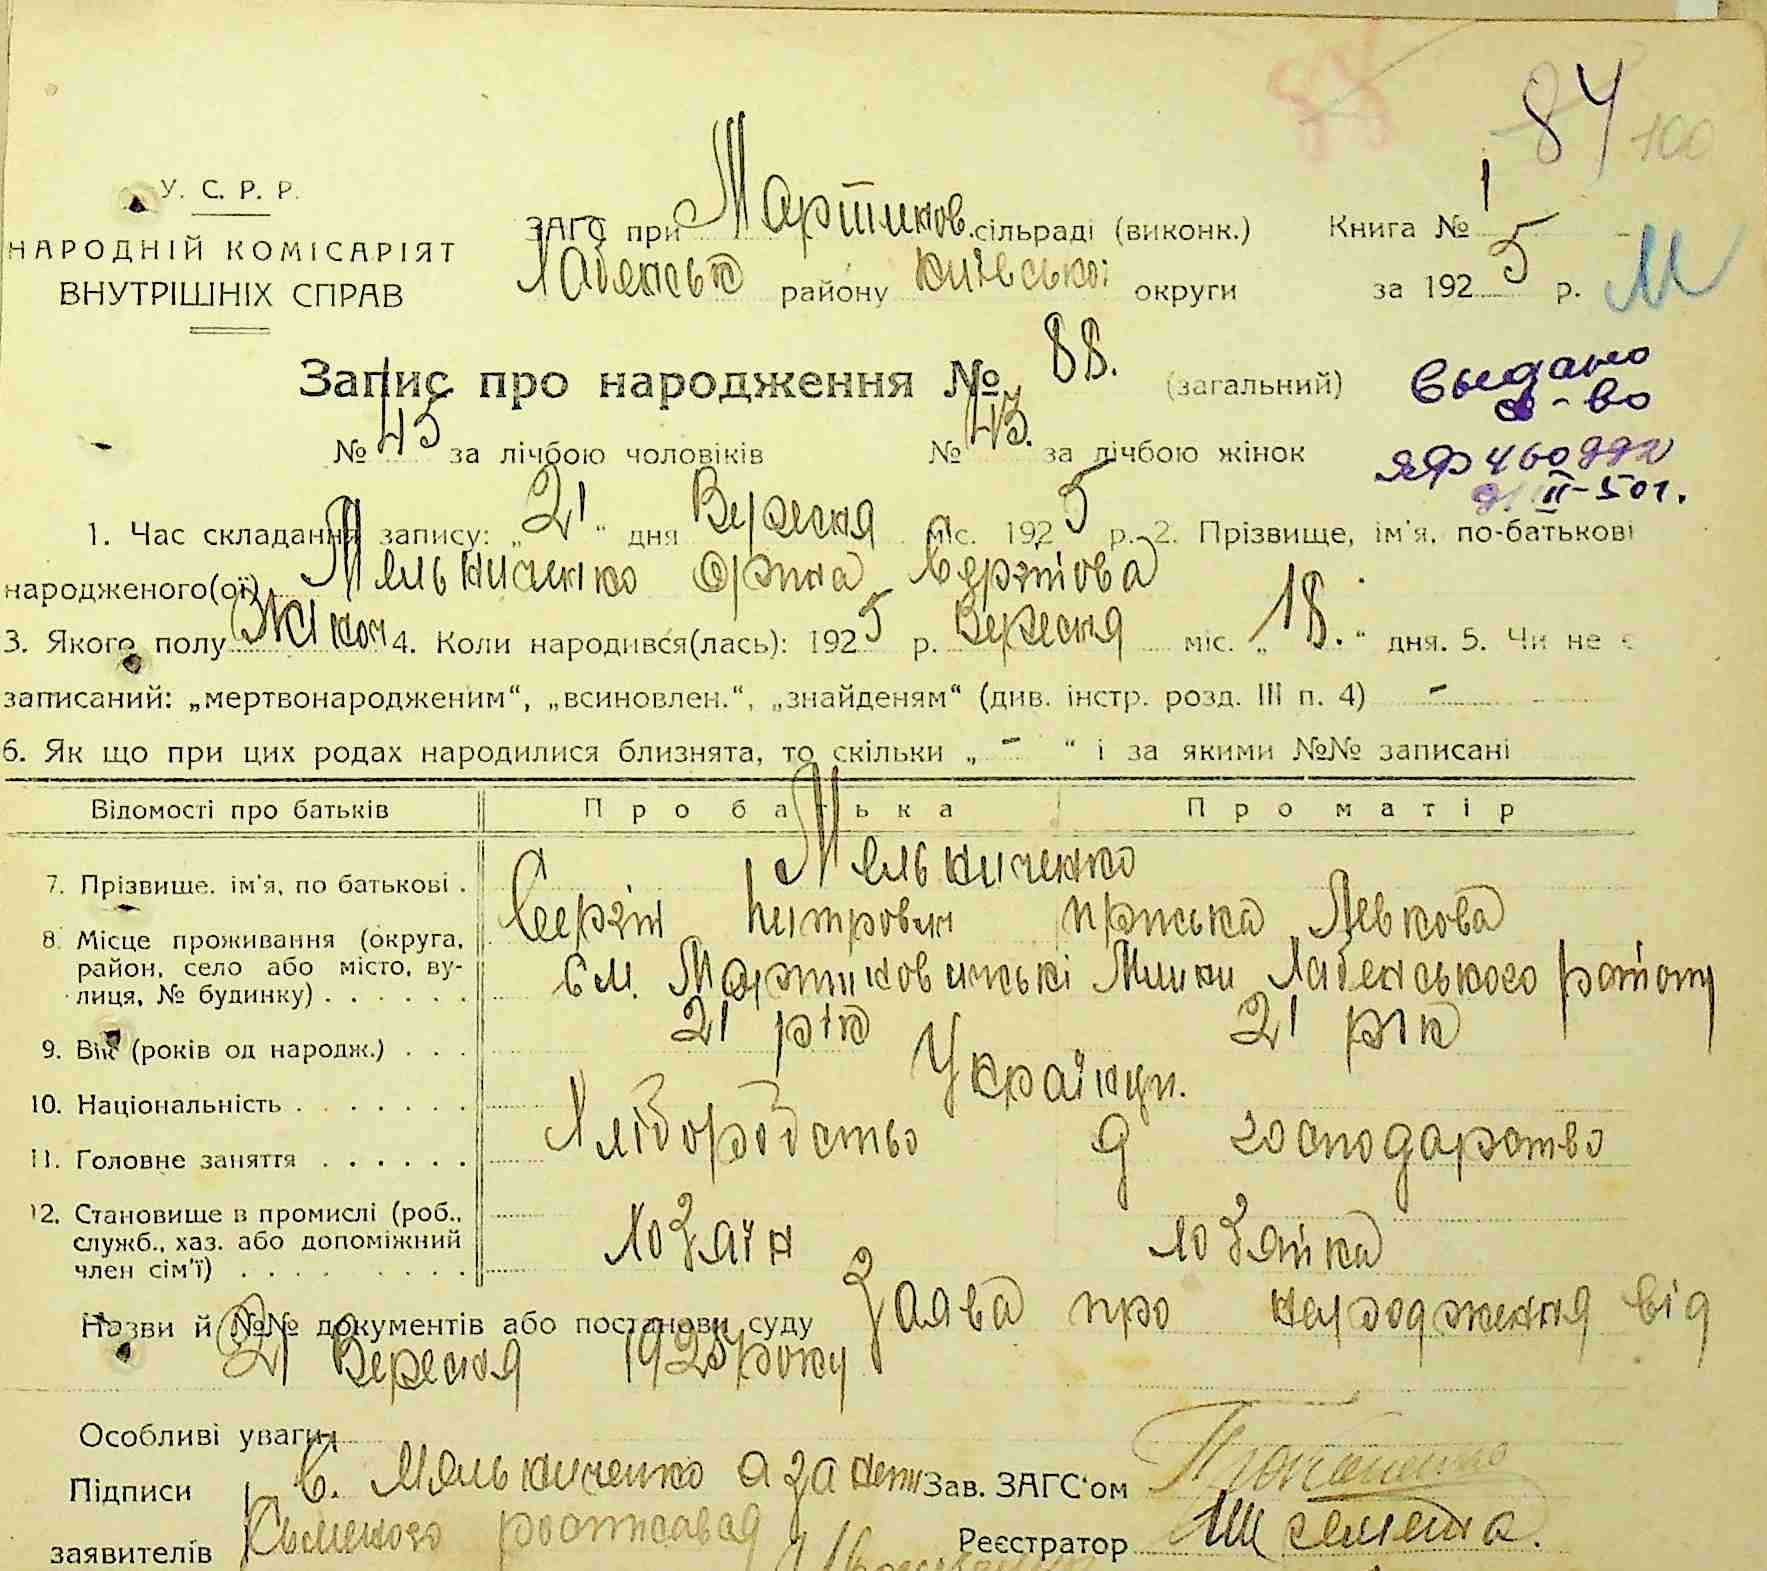 84 100
У. С. Р. Р.
НАРОДНІЙ КОМІСАРІЯТ
ВНУТРІШНІХ СПРАВ
ЗАГС при Мартинов. сільраді (виконк.) Книга № 1
Хабенськ району Київської округи за 1925 р. М
Запис про народження № 88. (загальний)
Выдано
св-во
№ 45 за лічбою чоловіків № 43. за лічбою жінок
ЯФ 460992
II-50г.
1. Час складання запису: „21“ дня Вересня міс. 1925 р. 2. Прізвище, ім'я, по-батькові
народженого(ої) Мельниченко Орина Сергіова
3. Якого полу Жіноч 4. Коли народився(лась): 1925 р. Вересня міс. „18.“ дня. 5. Чи не є
записаний: „мертвонародженим“, „всиновлен.“, „знайденям“ (див. інстр. розд. III п. 4) -
6. Як що при цих родах народилися близнята, то скільки „ - “ і за якими №№ записані
Відомості про батьків Про батька Про матір
7. Прізвище, ім'я, по батькові . Мельниченко
Сергій Питрович Приська Левкова
8. Місце проживання (округа, район, село або місто, вулиця, № будинку) . . . . . . Хабенського району
9. Вік (років од народж.) . . . 21 рік 21 рік
10. Національність . . . . . . . Українци.
11. Головне заняття . . . . . . Хліборобство д господарство
12. Становище в промислі (роб., служб., хаз. або допоміжний член сім'ї) . . . . . . . . . Хозяїн Хозяйка
Назви й №№ документів або постанови суду Заява про народження від
21 Вересня 1925 року
Особливі уваги:
Підписи С. Мельниченко а за Зав. ЗАГС'ом
заявителів росписався Реєстратор